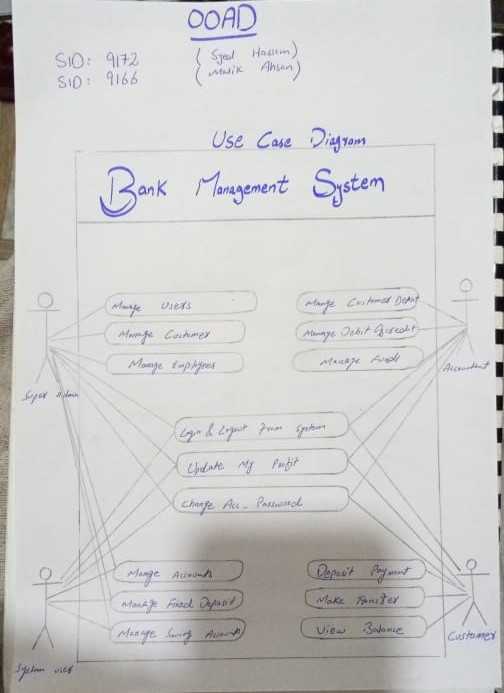 OOAD
SID: 9172 (Syed Hassam)
SID: 9166 (Malik Ahsan)
Use Case Diagram
Bank Management System
Manage Users
Manage Customer
Manage Employees
Manage Customer Depot
Manage Debit & Credit
Manage Funds
Super Admin
Accountant
Login & Logout From System
Update My Profit
Change Acc_ Password
Manage Accounts
Manage Fixed Deposit
Manage Saving Accounts
Deposit Payment
Make Transfer
View Balance
System user
Customer